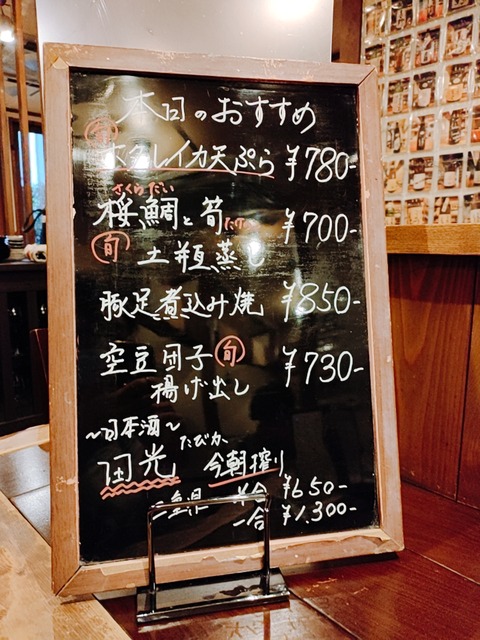 本日のおすすめ
旬
ホタルイカ天ぷら ¥780-
さくらだい
桜鯛と筍 たけのこ ¥700-
旬 土瓶蒸し
豚足煮込み焼 ¥850-
空豆団子 旬 ¥730-
揚げ出し
~日本酒~
たびか
田光 今朝搾り
三重県 半合 ¥650-
一合 ¥1.300-